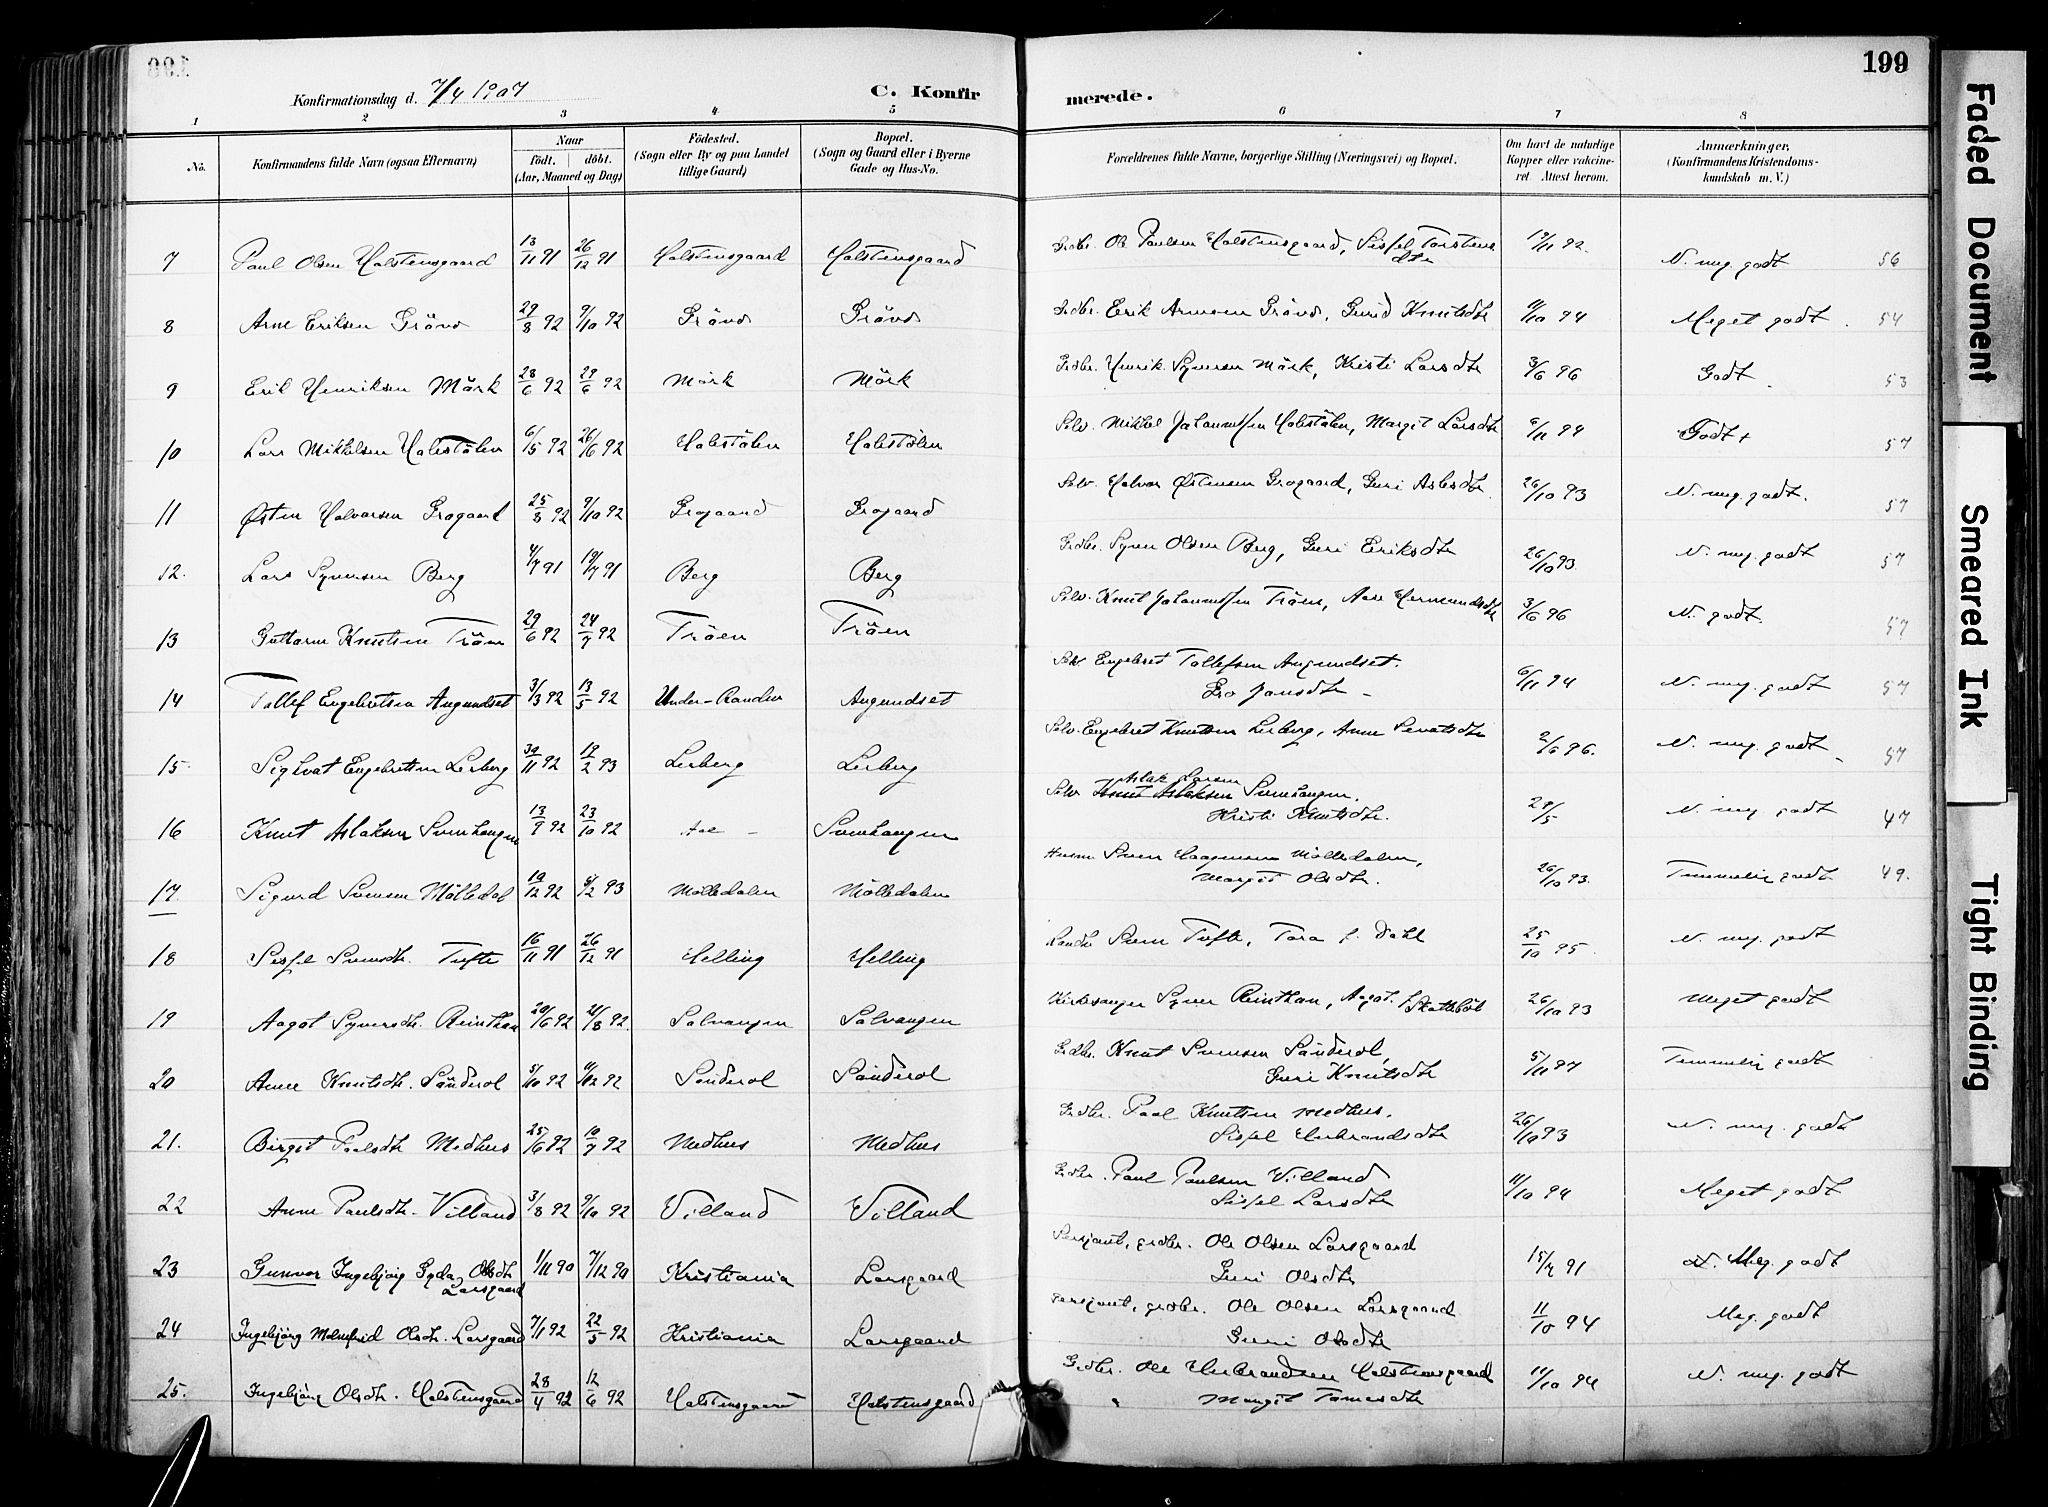 199
Konfirmationsdag d. 7/4 1907
C. Konfirmerede.
1 2 3 4 5 6 7 8
No.
Konfirmandens fulde Navn (ogsaa Efternavn)
Naar
födt. döbt.
(Aar, Maaned og Dag)
Födested.
(Sogn eller By og paa Landet
tillige Gaard)
Bopæl.
(Sogn og Gaard eller i Byerne
Gade og Hus-No.
Forældrenes fulde Navne, borgerlige Stilling (Næringsvei) og Bopæl.
Om havt de naturlige
Kopper eller vakcine-
ret Attest herom.
Anmærkninger,
(Konfirmandens Kristendoms-
kundskab m. V.)
7 Paul Olsen Halstensgaard 13/11 91 26/12 91 Halstensgaard Halstensgaard Grdbr. Ole Paulsen Halstensgaard, Sissel Torstens
dtr 19/11 92. N. mg. godt 56
8 Arne Eriksen Grönd 29/8 92 9/10 92 Grönd Grönd Grdbr. Erik Arnesen Grönd, Gurid Knutsdtr 11/10 94 Meget godt 54
9 Erik Henriksen Mörk 28/6 92 29/6 92 Mörk Mörk Grdbr. Henrik Syversen Mörk, Kristi Larsdtr 3/6 96 Godt 53
10 Lars Mikkelsen Halstölen 6/5 92 26/6 92 Halstölen Halstölen Selv. Mikkel Johannessen Halstölen, Margit Larsdtr 6/11 94 Godt + 57
11 Østen Halvorsen Grogaard 25/8 92 9/10 92 Grogaard Grogaard Selv. Halvor Østensen Grogaard, Guri Aslesdtr 26/10 93 N. mg. godt. 57
12. Lars Syversen Berg 4/7 91 19/7 91 Berg Berg Grdbr. Syver Olsen Berg, Guri Eriksdtr 26/10 93 N. mg. godt 57
13 Guttorm Knutsen Tröen 29/6 92 24/7 92 Tröen Tröen Selv. Knut Johannessen Tröen, Aase Hermundsdtr 3/6 96 N. godt. 57
14 Tollef Engebretsen Augundset 3/3 92 13/5 92 Under-Randen Augundset Selv. Engebret Tollefsen Augundset.
Gro Jonsdtr 6/11 94 N. mg. godt 57
15 Sighvat Engebretsen Lerberg 30/11 92 19/2 93 Lerberg Lerberg Selv. Engebret Knutsen Lerberg, Anne Sevatsdtr 2/6 96. N. mg. godt 57
Aslak Larsen
16 Knut Aslaksen Svenhaugen 13/9 92 23/10 92 Aal Svenhaugen Selv. Knut Aslaksen Svenhaugen,
Kristi Knutsdtr. 29/5 N. mg godt 47
17 Sigurd Svensen Mölledal 19/12 92 6/2 93 Mölledalen Mölledalen Husm Sven Haagensen Mölledalen,
Margit Olsdtr. 26/10 93. Temmelig godt 49.
18 Sissel Svensdtr. Tufte 16/11 91 26/12 91 Helling Helling Sven Tufte, Tora f. Dahl 25/10 95. N. mg. godt
19 Aagot Syversdtr. Reinthan 20/6 92 21/8 92. Solvangen Solvangen Kirkesanger Syver Reinthan, Aagot f. Skattebøl 26/10 93 Meget godt
20 Anne Knutsdtr. Sönderol 5/10 92 11/12 92 Sönderol Sönderol Grdbr. Knut Svensen Sönderol,
Guri Knutsdtr 5/11 97 Temmelig godt
21. Birgit Paalsdtr Medhus 25/6 92 10/7 92 Medhus Medhus Grdbr. Paal Knutsen Medhus.
Sissel Herbrandsdtr 26/10 93 N. mg. godt
22 Anne Paulsdtr. Villand 3/8 92 9/10 92 Villand Villand Grdbr. Paul Paulsen Villand
Sissel Larsdtr 11/10 94 Meget godt
23 Gunvor Ingebjörg Gyda Olsdtr
Larsgaard 1/11 90 7/12 90 Kristiania Larsgaard Sersjant, grdbr. Ole Olsen Larsgaard
Guri Olsdtr 15/7 91 N. Meg. godt
24 Ingebjörg Malmfrid Olsdtr. Larsgaard 7/1 92 22/5 92 Kristiania Larsgaard Sersjant, grdbr. Ole Olsen Larsgaard
Guri Olsdtr 11/10 94 Meg. godt
25. Ingebjörg Olsdtr. Halstensgaard 28/4 92 12/6 92 Halstensgaard Halstensgaard Grdbr. Ole Herbrandsen Halstensgaard
Margit Tomesdtr 11/10 94 N. mg. godt
Faded Document
Smeared Ink
Tight Binding